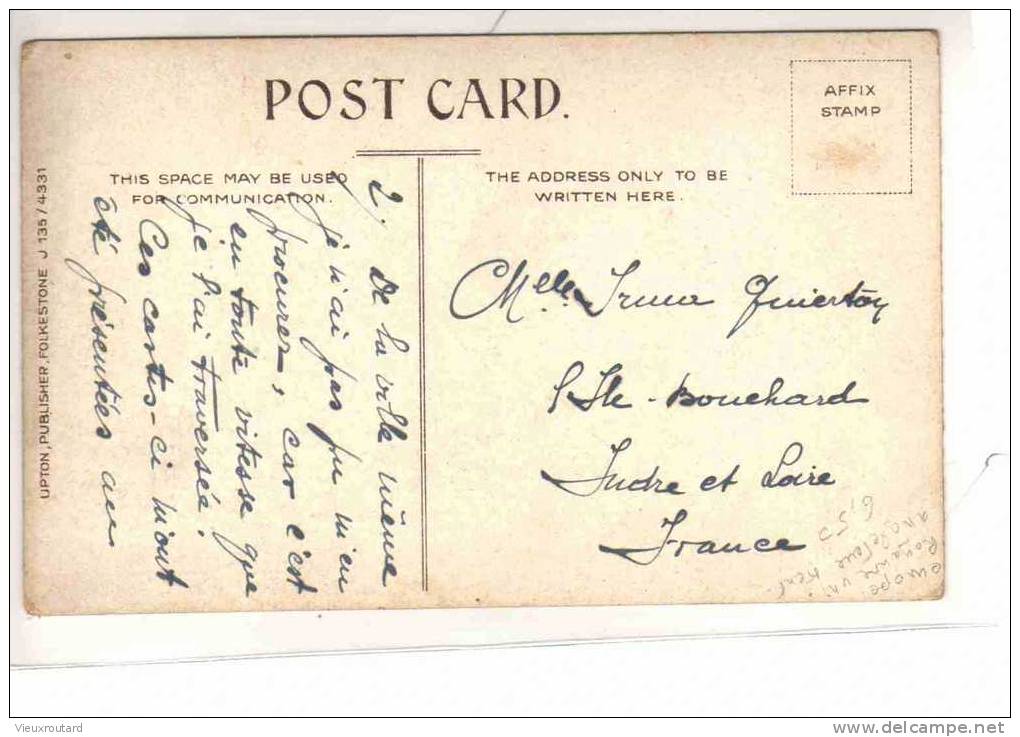 POST CARD.
AFFIX
STAMP
THIS SPACE MAY BE USED
FOR COMMUNICATION.
THE ADDRESS ONLY TO BE
WRITTEN HERE.
UPTON, PUBLISHER, FOLKESTONE J 135/4331
2). De la ville même
je n'ai pas pu m'en
procurer, car c'est
en toute vitesse que
je l'ai traversée.
Ces cartes-ci m'ont
été présentées au
Melle Irma
l'Ile-Bouchard
Indre et Loire
France
6,50
europe
Royaume uni
angleterre Kent
Vieuxroutard
www.delcampe.net